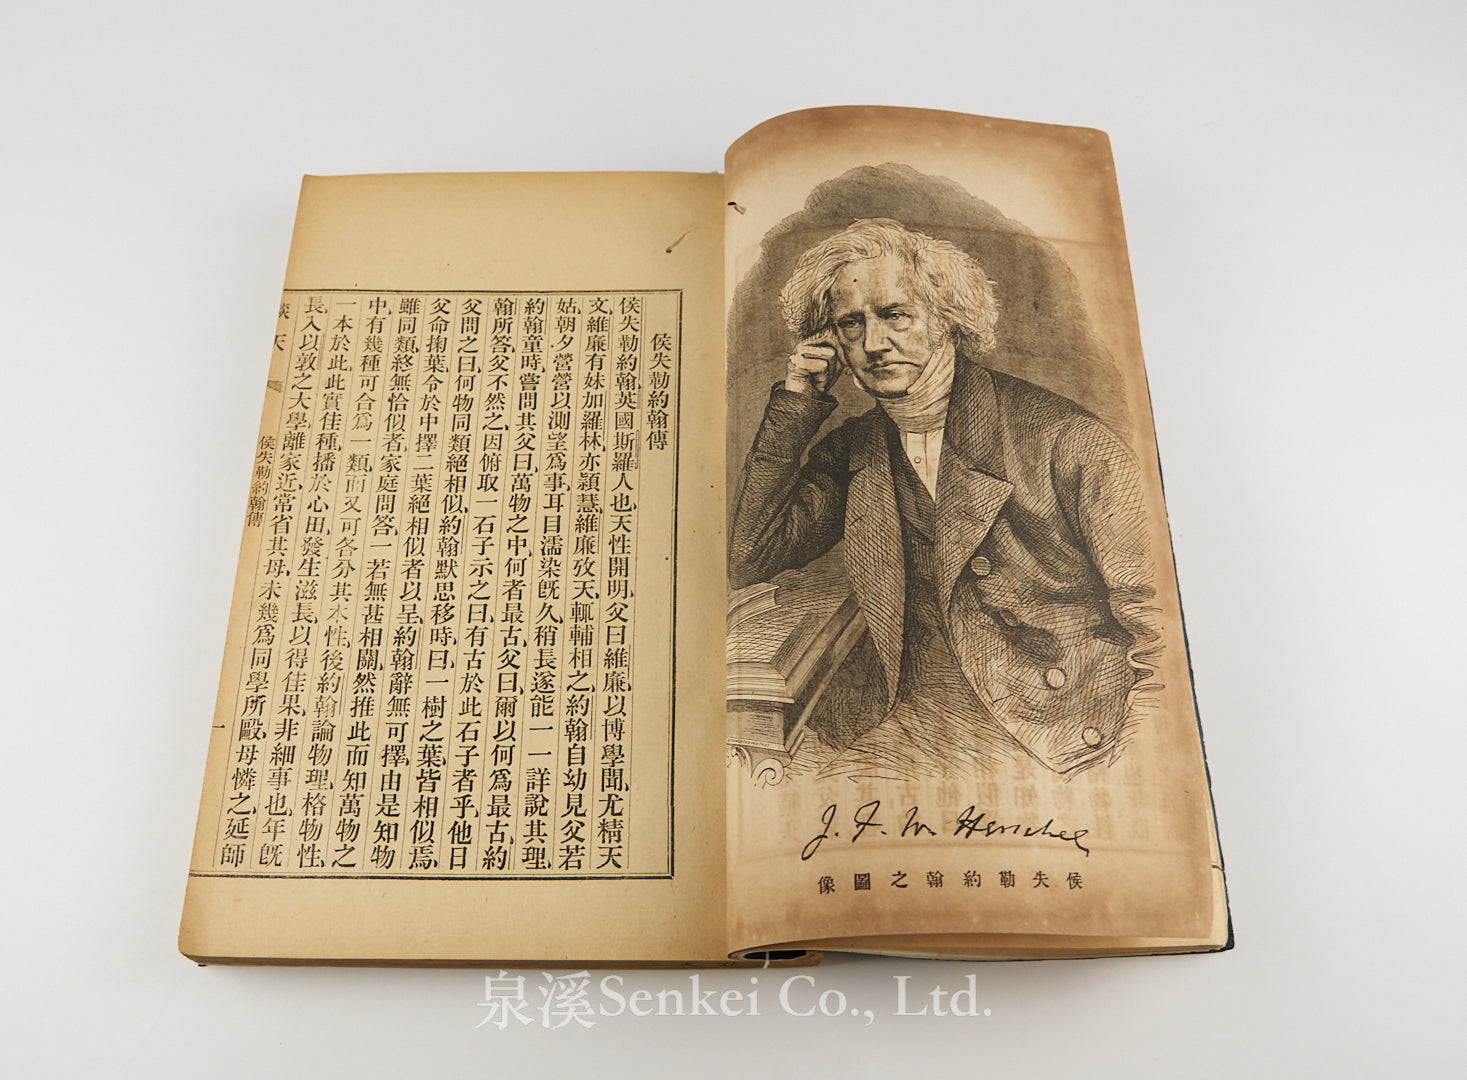 侯失勒約翰傳
侯失勒約翰英國斯羅人也天性開明父曰維廉以博學聞尤精天
文維廉有妹加羅林亦頴慧維廉攷天輒輔相之約翰自幼見父若
姑朝夕營營以測望爲事耳目濡染旣久稍長遂能一一詳說其理
約翰童時嘗問其父曰萬物之中何者最古父曰爾以何爲最古約
翰所答父不然之因俯取一石子示之曰有古於此石子者乎他日
父問之曰何物同類絕相似約翰默思移時曰一樹之葉皆相似焉
父命掬葉令於中擇二葉絕相似者以呈約翰辭無可擇由是知物
雖同類終無恰似者家庭問答一若無甚相關然推此而知萬物之
中有幾種可合爲一類而又可各分其本性後約翰論物理格物性
一本於此此實佳種播於心田發生滋長以得佳果非細事也年旣
長入以敦之大學離家近常省其母未幾爲同學所毆母憐之延師
談天
侯失勒約翰傳
一
J. F. W. Herschel
侯失勒約翰之圖像
泉溪Senkei Co., Ltd.